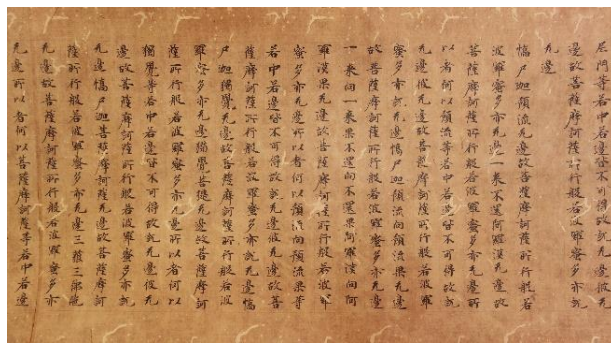 尼門等若中若邊皆不可得故說无邊彼无
邊故菩薩摩訶薩所行般若波羅蜜多亦
无邊
憍尸迦預流无邊故菩薩摩訶薩所行般若
波羅蜜多亦无邊一來不還阿羅漢无邊故
菩薩摩訶薩所行般若波羅蜜多亦无邊所
以者何以預流等若中若邊皆不可得故說
无邊彼无邊故菩薩摩訶薩所行般若波羅
蜜多亦說无邊憍尸迦預流向預流果无邊
故菩薩摩訶薩所行般若波羅蜜多亦无邊
一來向一來果不還向不還果阿羅漢向阿
羅漢果无邊故菩薩摩訶薩所行般若波羅
蜜多亦无邊所以者何以預流向預流果等
若中若邊皆不可得故說无邊彼无邊故菩
薩摩訶薩所行般若波羅蜜多亦說无邊憍
尸迦獨覺无邊故菩薩摩訶薩所行般若波
羅蜜多亦无邊獨覺菩提无邊故菩薩摩訶
薩所行般若波羅蜜多亦无邊所以者何以
獨覺等若中若邊皆不可得故說无邊彼无
邊故菩薩摩訶薩所行般若波羅蜜多亦說
无邊憍尸迦菩薩摩訶薩无邊故菩薩摩訶
薩所行般若波羅蜜多亦无邊三藐三佛陀
无邊故菩薩摩訶薩所行般若波羅蜜多亦
无邊所以者何以菩薩摩訶薩等若中若邊